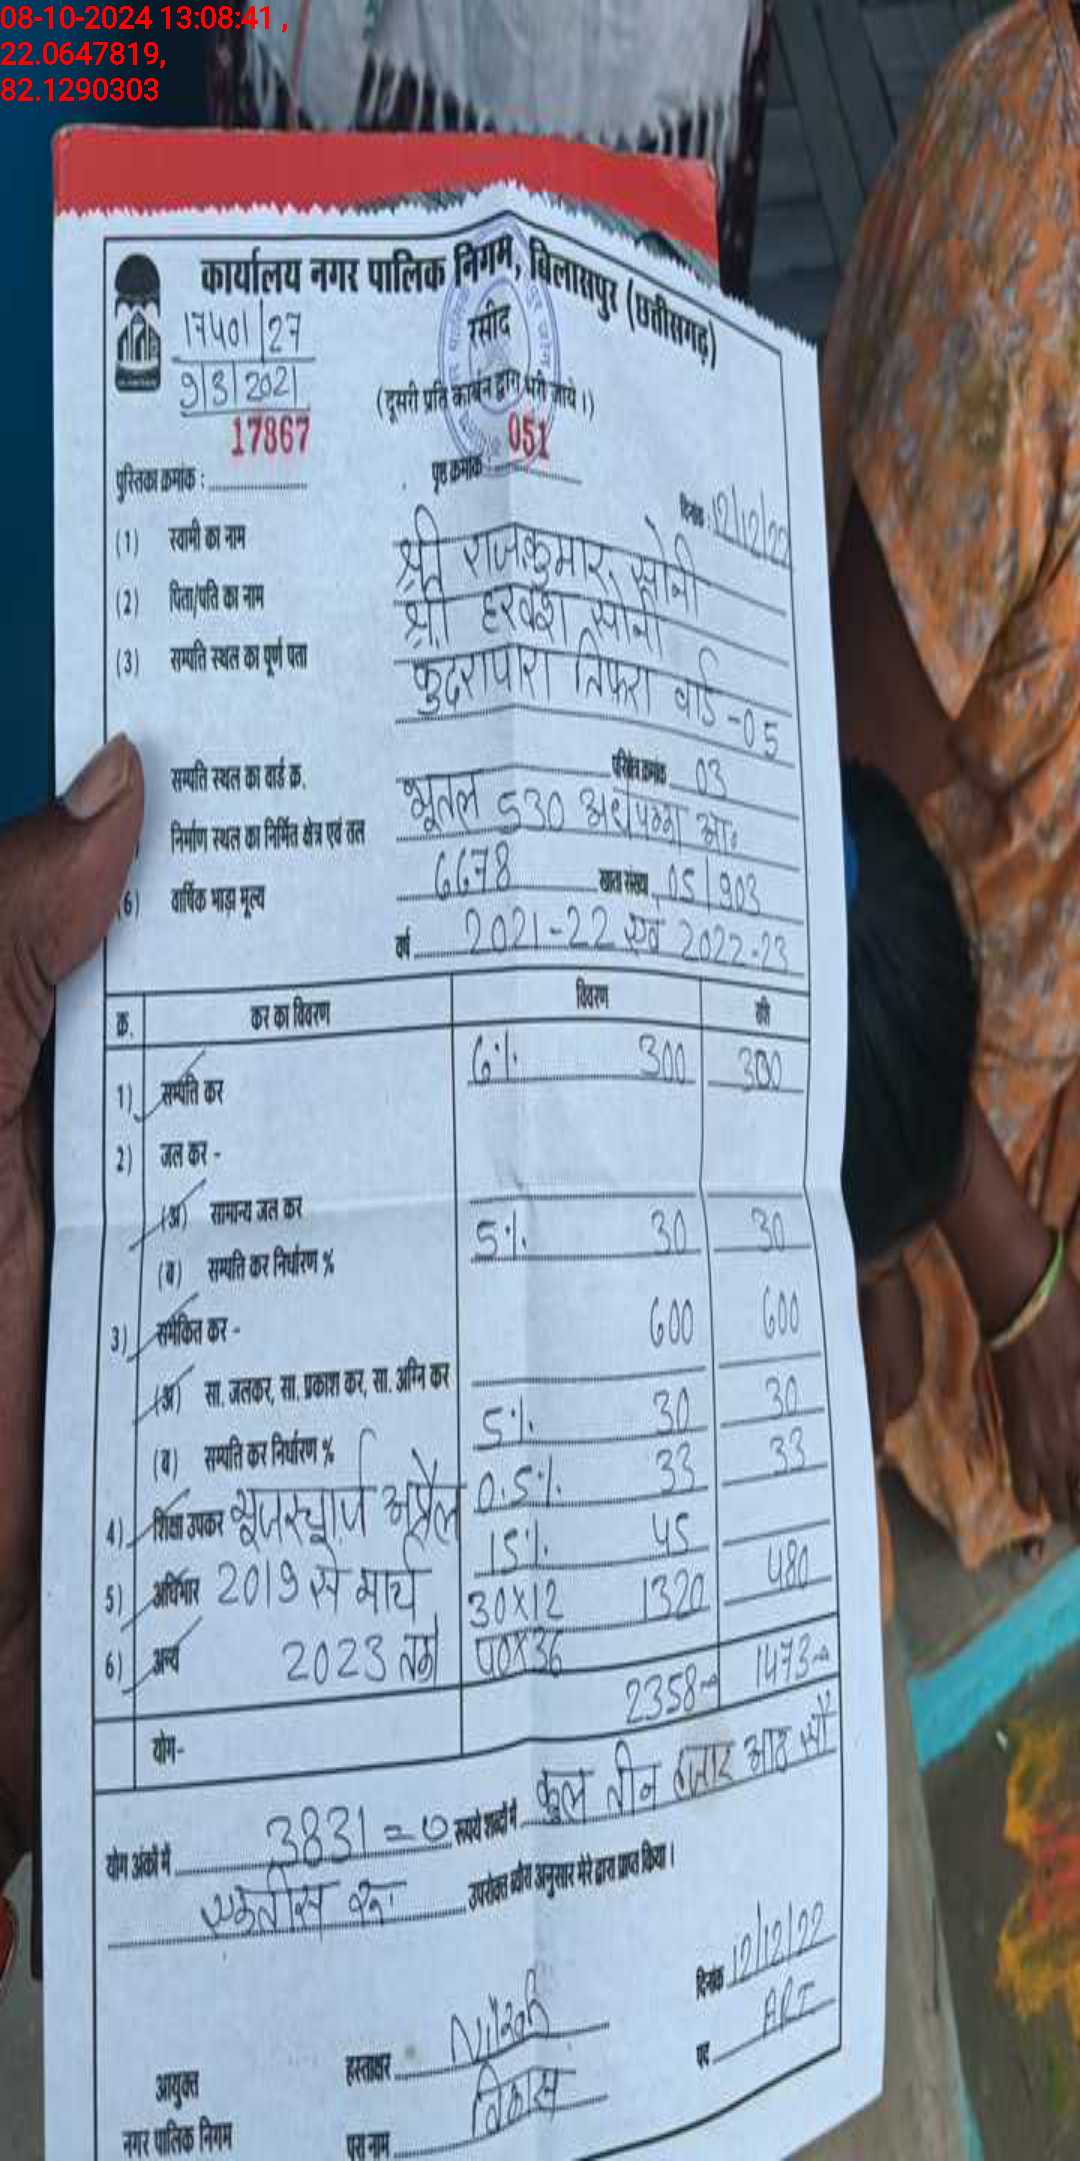 08-10-2024 13:08:41 ,
22.0647819,
82.1290303
कार्यालय नगर पालिक निगम, बिलासपुर (छत्तीसगढ़)
17401/27
9/3/2021
रसीद
(दूसरी प्रति कार्बन द्वारा भरी जाये।)
17867 051
पुस्तिका क्रमांक : पृष्ठ क्रमांक :
दिनांक : 12/12/22
(1) स्वामी का नाम श्री राजकुमार सोनी
(2) पिता/पति का नाम श्री हरवंश सोनी
(3) सम्पति स्थल का पूर्ण पता कुदरापारा तिफरा वार्ड -05
सम्पति स्थल का वार्ड क्र. परिक्षेत्र क्रमांक 03
निर्माण स्थल का निर्मित क्षेत्र एवं तल भूतल 530 अर्धपक्का आ॰
(6) वार्षिक भाड़ा मूल्य 6678 खाता संख्या 05/903
वर्ष 2021-22 एवं 2022-23
क्र. कर का विवरण विवरण राशि
1) सम्पति कर 6% 300 300
2) जल कर -
(अ) सामान्य जल कर
(ब) सम्पति कर निर्धारण % 5% 30 30
3) समेकित कर - 600 600
(अ) सा. जलकर, सा. प्रकाश कर, सा. अग्नि कर
(ब) सम्पति कर निर्धारण % 5% 30 30
4) शिक्षा उपकर यूजरचार्ज अप्रैल 0.5% 33 33
5) अधिभार 2019 से मार्च 15% 45
6) अन्य 2023 तक 30x12 1320 480
40x36
योग- 2358 1473
योग अंकों में 3831=0 रूपये शब्दों में कुल तीन हजार आठ सौ
एकतीस रू उपरोक्त ब्यौरा अनुसार मेरे द्वारा प्राप्त किया।
दिनांक 12/12/22
हस्ताक्षर पद ARI
आयुक्त
नगर पालिक निगम पूरा नाम विकास